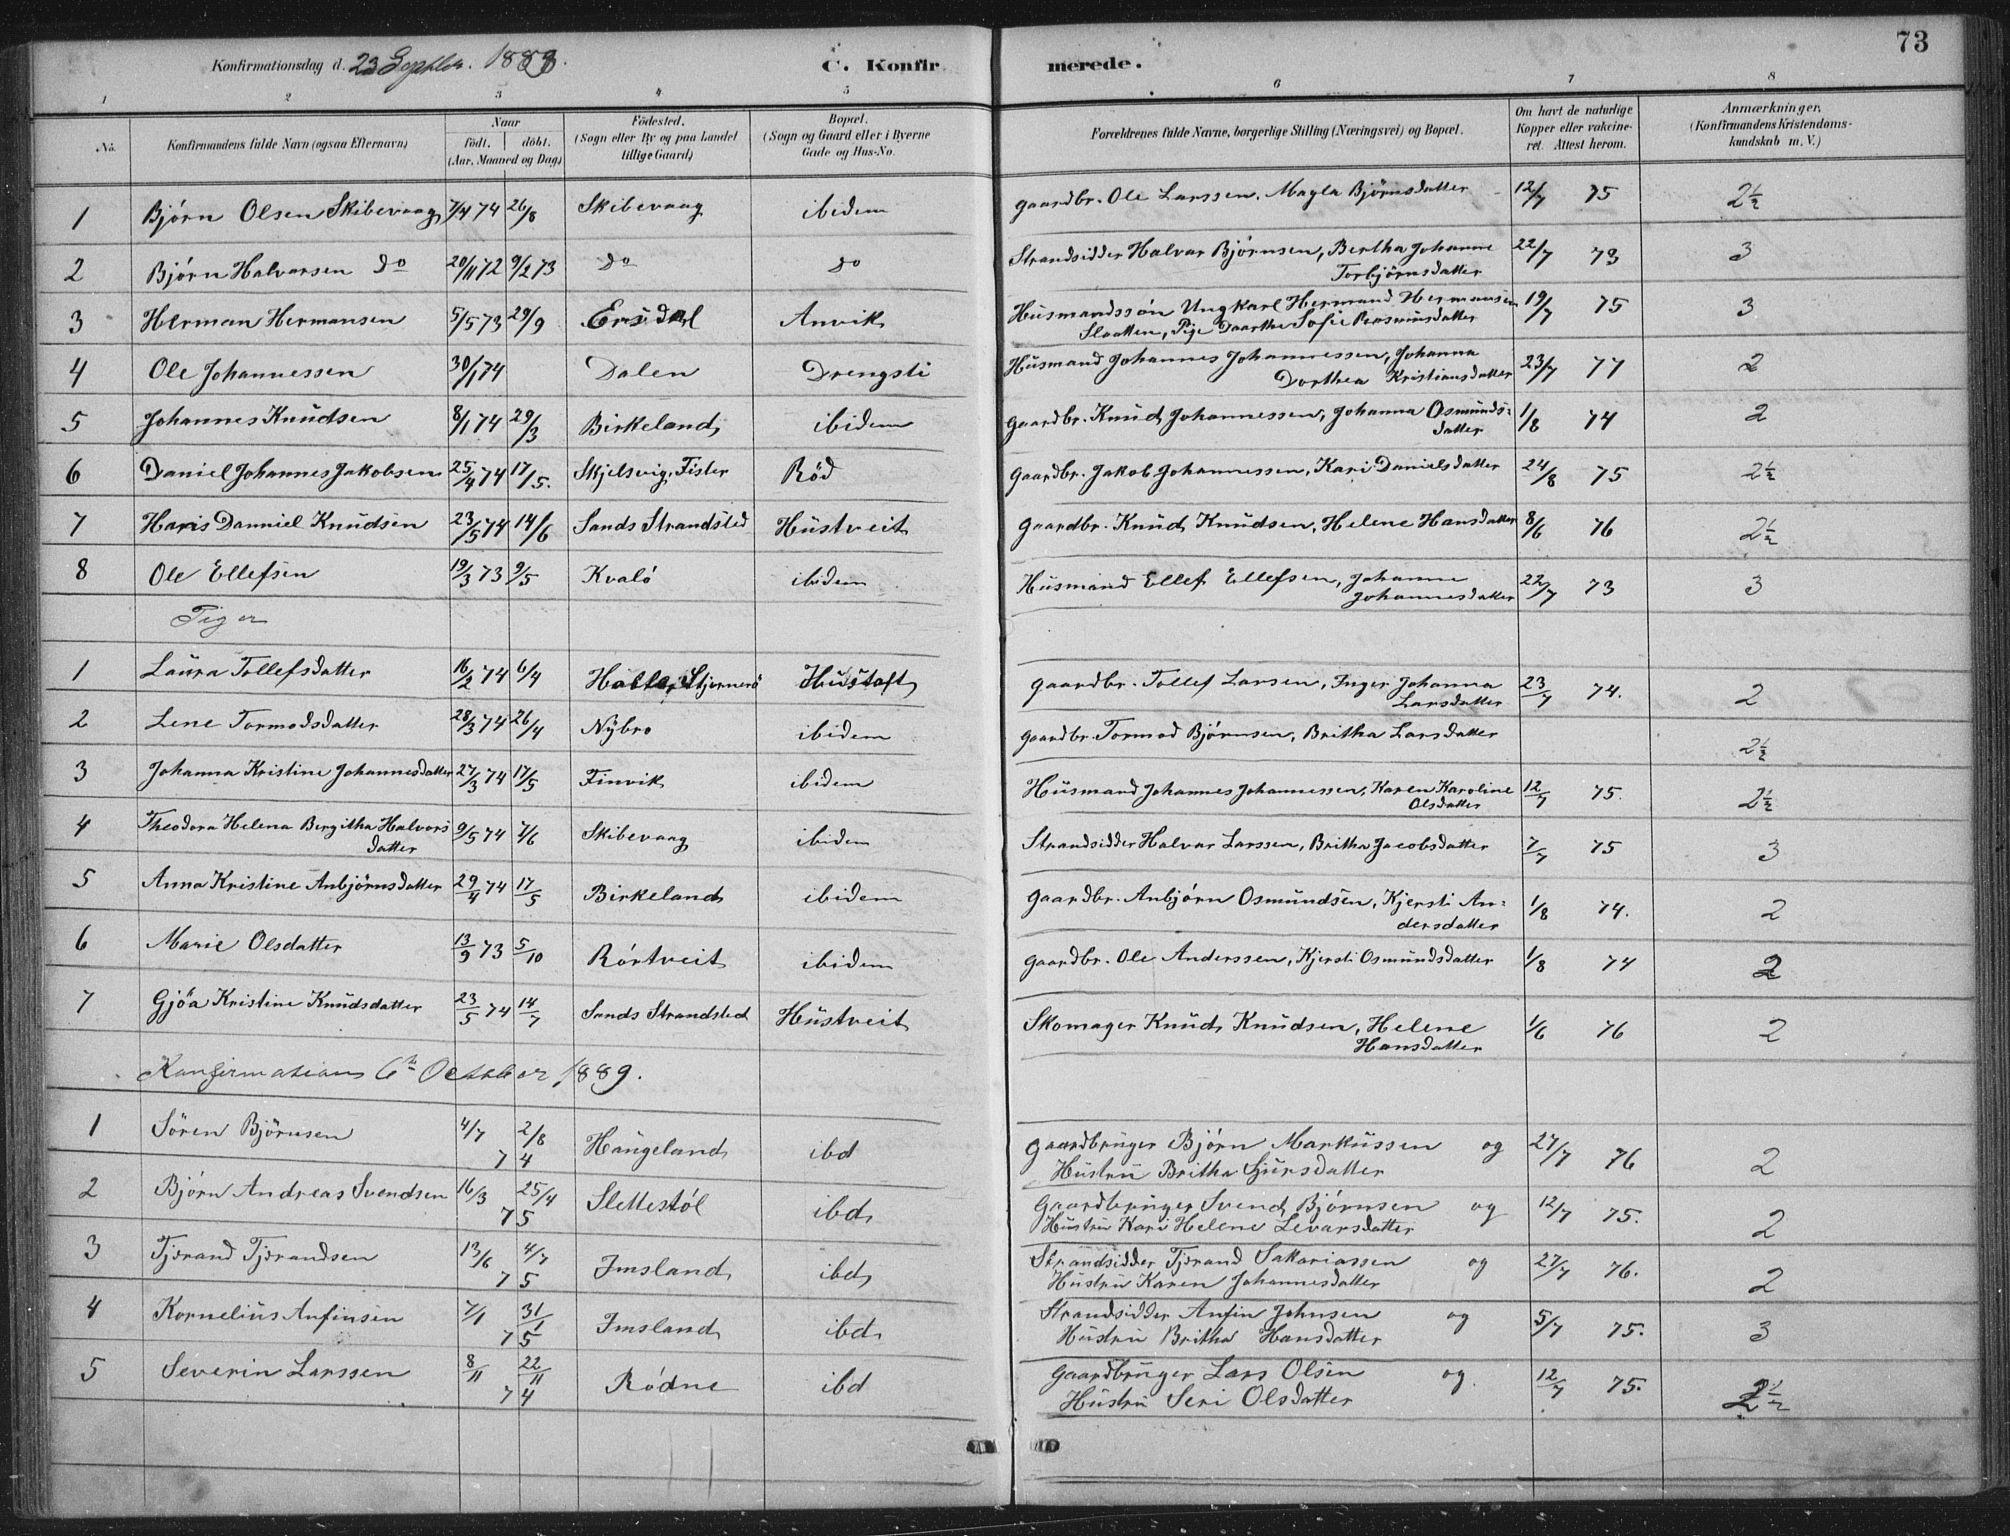 73
Konfirmationsdag d. 23 Septbr. 1888. C. Konfir merede.
1 2 3 4 5 6 7 8
No. Konfirmandens fulde Navn (ogsaa Efternavn) Naar født. døbt. (Aar, Maaned og Dag) Födested. (Sogn eller By og paa Landet tillige Gaard) Bopæl. (Sogn og Gaard eller i Byerne Gade og Hus-No. Forældrenes fulde Navne, borgerlige Stilling (Næringsvei) og Bopæl. Om havt de naturlige Kopper eller vakcineret. Attest herom. Anmærkninger. (Konfirmandens Kristendomskundskab m. V.)
1 Bjørn Olsen Skibevaag 7/4 74 26/8 Skibevaag ibidem gaardbr. Ole Larssen, Magla Bjørnsdatter 12/7 75 2½
2 Bjørn Halvarsen do 20/11 72 9/2 73 do do Strandsidder Halvar Björnsen, Bertha Johanne Torbjörnsdatter 22/7 73 3
3 Herman Hermansen 5/5 73 29/9 Ersdal Anvik Husmandssøn Ungkarl Hermand Hermansen
Slaatten, Pige Daarthe Sofie Rasmusdatter 19/7 75 3
4 Ole Johannessen 30/1 74 Dalen Drengsti Husmand Johannes Johannessen, Johanna
Dorthea Kristiansdatter 23/7 77 2
5 Johannes Knudsen 8/1 74 29/3 Birkeland ibidem gaardbr. Knud Johannessen, Johanna Osmunds-
datter 1/8 74 2
6 Daniel Johannes Jakobsen 25/4 74 17/5. Skjelsvig, Fister Röd gaardbr. Jakob Johannessen, Kari Danielsdatter 24/8 75 2½
7 Hans Danniel Knudsen 23/5 74 14/6 Sands Strandsted Hustveit gaardbr. Knud Knudsen, Helene Hansdatter 8/6 76 2½
8 Ole Ellefsen 19/3 73 9/5 Kvalö ibidem Husmand Ellef Ellefsen, Johanne
Johannesdatter 22/7 73 3
Piger
1 Laura Tollefsdatter 16/2 74 6/4 Halle, Stjernerö Hustoft gaardbr. Tollef Larsen, Inger Johanna
Larsdatter 23/7 74. 2
2 Lene Tormodsdatter 28/3 74 26/4 Nybro ibidem gaardbr. Tormod Bjørnsen, Britha Larsdatter 2½
3 Johanna Kristine Johannesdatter 27/3 74 17/5 Finvik ibidem Husmand Johannes Johannessen, Karen Karoline
Olsdatter 12/7 75. 2½
4 Theodora Helena Bergitha Halvors
datter 9/5 74 7/6 Skibevaag ibidem Strandsidder Halvar Larssen, Britha Jacobsdatter 7/7 75 3
5 Anna Kristine Anbjörnsdatter 29/4 74 17/5 Birkeland ibidem gaardbr. Anbjörn Osmundsen, Kjersti An-
dersdatter 1/8 74. 2
6 Marie Olsdatter 13/9 73 5/10 Rörtveit ibidem gaardbr. Ole Anderssen, Kjersti Osmundsdatter 1/8 74 2
7 Gjöa Kristine Knudsdatter 23/5 74 14/7 Sands Strandsted Hustveit Skomager Knud Knudsen, Helene
Hansdatter 1/6 76 2
Konfirmation 6te October 1889.
1 Sören Björnsen 4/7 2/8 74 Haugeland ibd gaardbruger Bjørn Markussen og
Hustru Britha Sjursdatter 27/7 76 2
2 Bjørn Andreas Svendsen 16/3 25/4 75 Slettestöl ibd gaardbruger Svend Bjørnsen og
Hustru Kari Helene Levarsdatter 12/7 75. 2
3 Tjerand Tjerandsen 13/6 4/7 75 Imsland ibd Strandsidder Tjerand Sakariassen og
Hustru Karen Johannesdatter 27/7 76. 2
4 Kornelius Anfinsen 7/1 31/1 75 Imsland ibd Strandsidder Anfin Johnsen og
Hustru Britha Hansdatter 5/7 75. 3
5 Severin Larssen 8/11 22/11 74 Rödne ibd gaardbruger Lars Olsen og
Hustru Seri Olsdatter 12/7 75. 2½